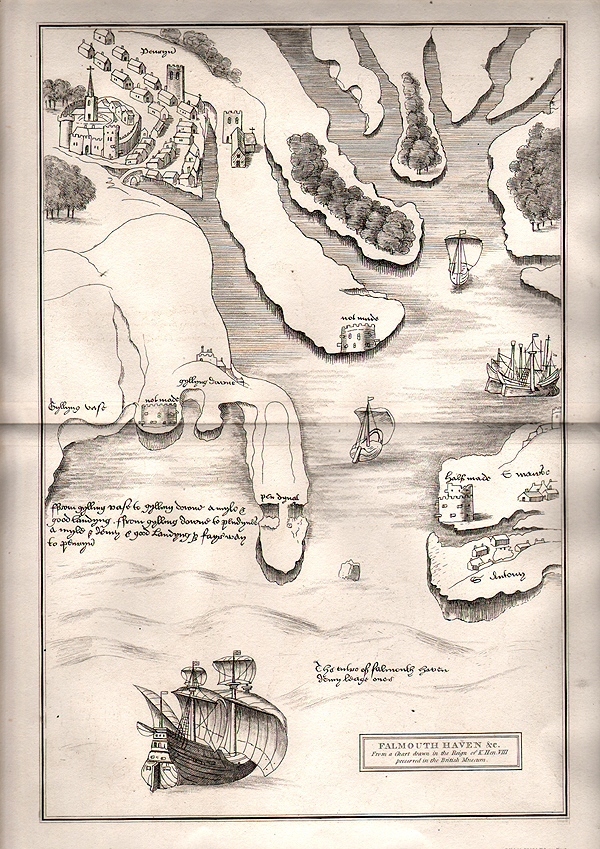 Penryn
not made
gyllyng downe
Gyllyng vase
not made
half made S mawse
pen dynas
ffrom gylling vase to gylling downe a myle &
good landyng. ffrom gylling downe to pendynas
a myle & demy & good landyng & fayr way
to penryn
S Antony
The entre of falmouth haven
demy leage over
FALMOUTH HAVEN &c.
From a Chart drawn in the Reign of K. Hen. VIII
preserved in the British Museum.